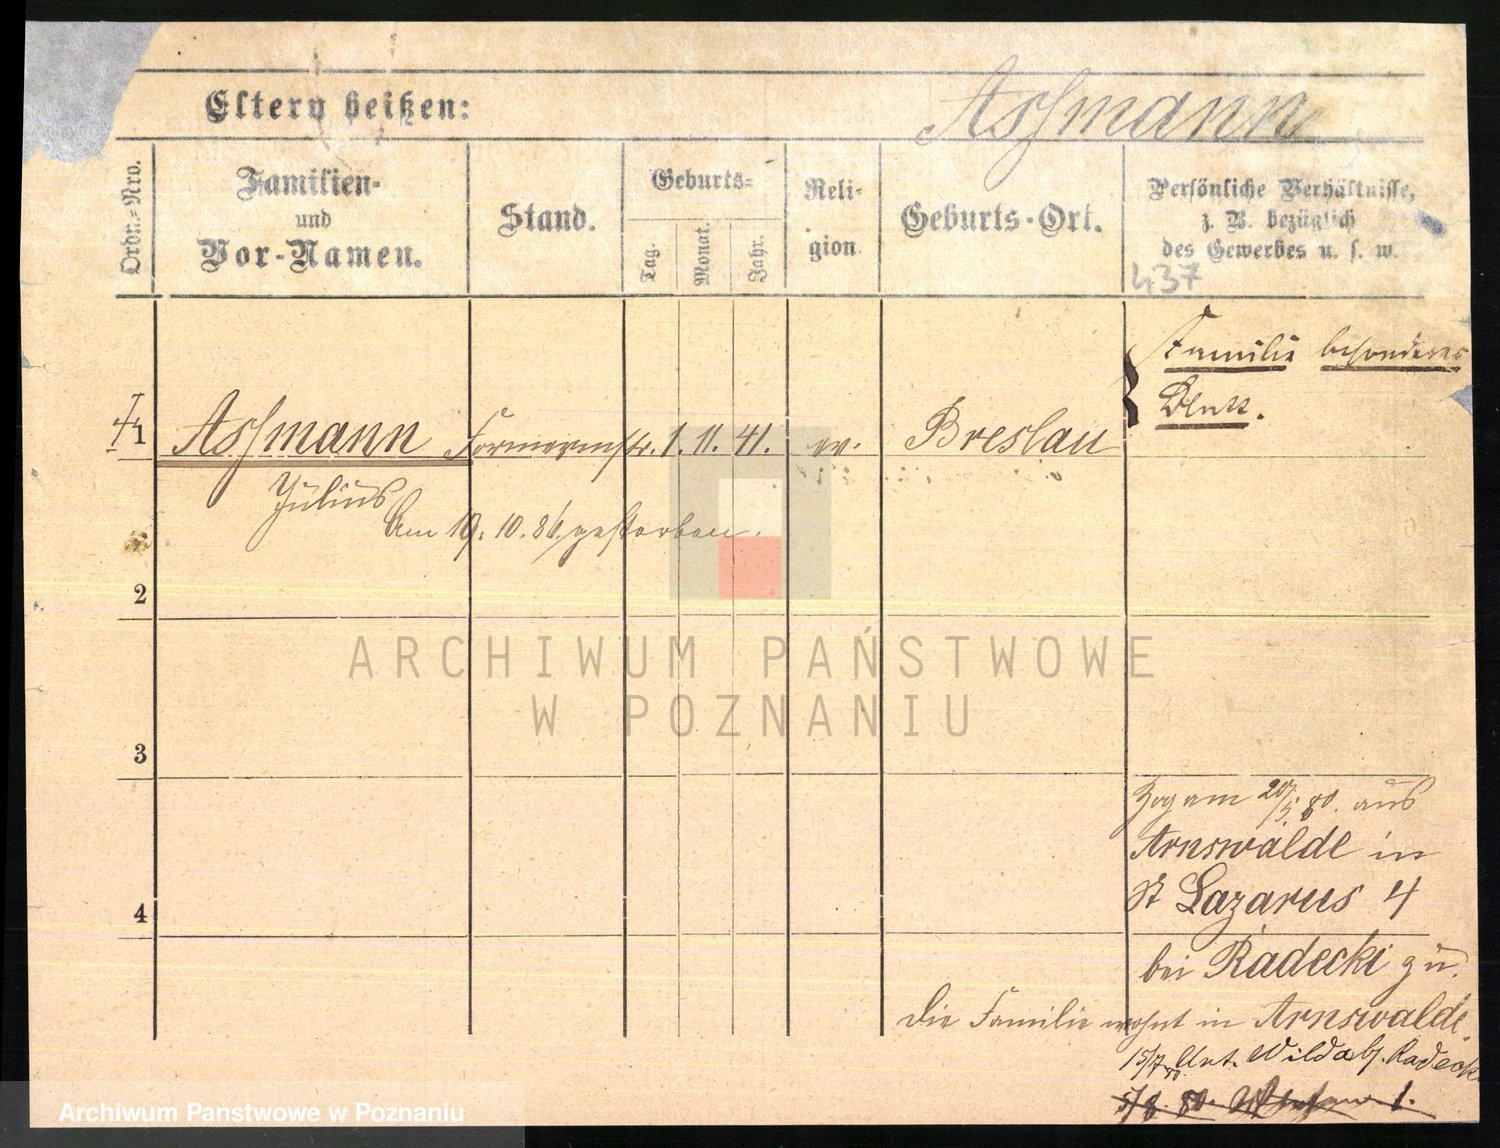 Eltern heißen:
Aſsmann
Ordn.-Nro.
Familien-
und
Vor-Namen.
Stand.
Geburts-
Tag.
Monat.
Jahr.
Reli-
gion
Geburts-Ort.
Persönliche Verhältnisse,
z. B. bezüglich
des Gewerbes u. s. w.
437
Familie besonderes
Blatt.
1 Aſsmann Formermstr. 1. 11. 41. ev. Breslau
Julius
Am 19. 10. 86. gestorben.
2
ARCHIWUM PAŃSTWOWE
W POZNANIU
3
Zog am 20/5. 80. aus
Arnswalde in
St Lazarus 4
4
bei Radecki zu.
Die Familie wohnt in Arnswalde.
15/7 80. Unt. Wilda b/. Radecki
Archiwum Państwowe w Poznaniu